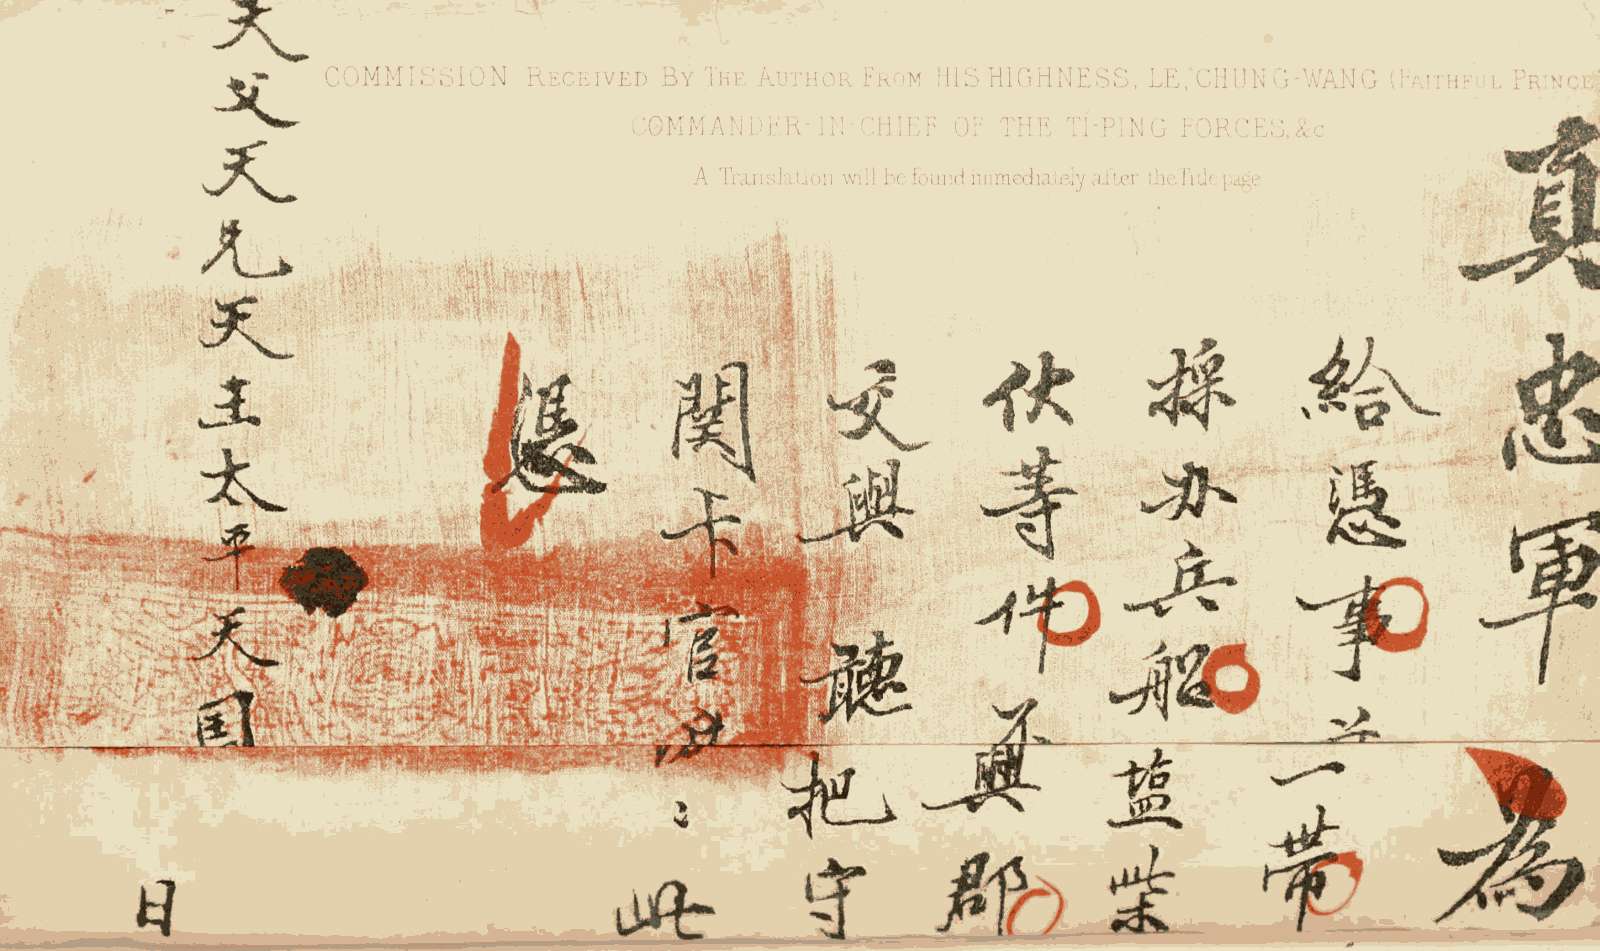 COMMISSION RECEIVED BY THE AUTHOR FROM HIS HIGHNESS, LE, CHUNG-WANG (FAITHFUL PRINCE
COMMANDER-IN-CHIEF OF THE TI-PING FORCES, &c
A Translation will be found immediately after the Title page
真忠軍
為
給憑事
一帶
採办兵船
塩柴
伙等件
興郡
交與
聽
把守
関卡官
此
憑
天父天兄天王太平天囯
日